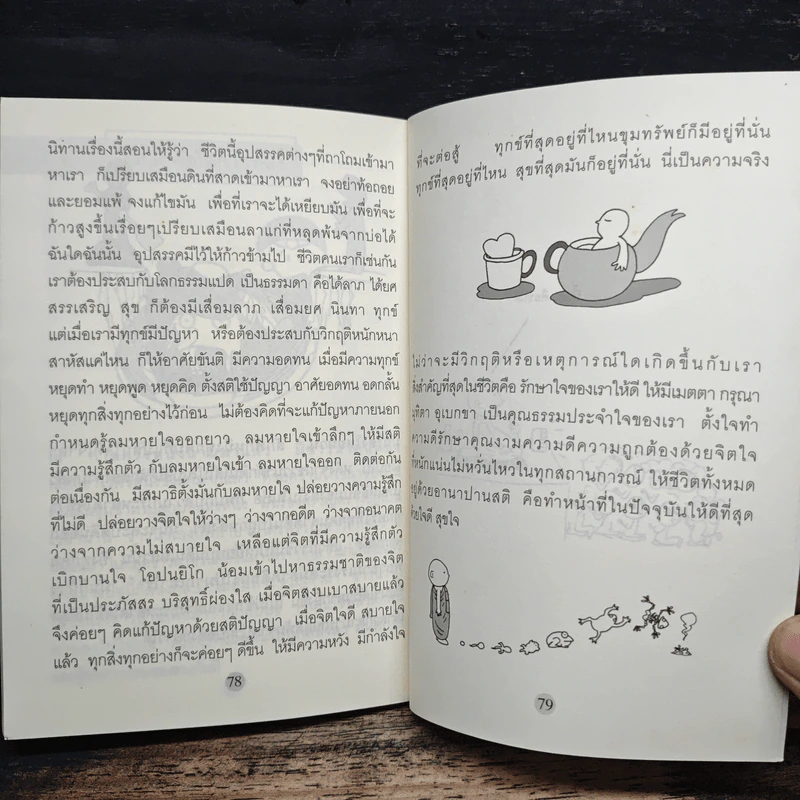 นิทานเรื่องนี้สอนให้รู้ว่า ชีวิตนี้อุปสรรคต่างๆที่ถาโถมเข้ามา
หาเรา ก็เปรียบเสมือนดินที่สาดเข้ามาหาเรา จงอย่าท้อถอย
และยอมแพ้ จงแก้ไขมัน เพื่อที่เราจะได้เหยียบมัน เพื่อที่จะ
ก้าวสูงขึ้นเรื่อยๆเปรียบเสมือนลาแก่ที่หลุดพ้นจากบ่อได้
ฉันใดฉันนั้น อุปสรรคมีไว้ให้ก้าวข้ามไป ชีวิตคนเราก็เช่นกัน
เราต้องประสบกับโลกธรรมแปด เป็นธรรมดา คือได้ลาภ ได้ยศ
สรรเสริญ สุข ก็ต้องมีเสื่อมลาภ เสื่อมยศ นินทา ทุกข์
แต่เมื่อเรามีทุกข์มีปัญหา หรือต้องประสบกับวิกฤติหนักหนา
สาหัสแค่ไหน ก็ให้อาศัยขันติ มีความอดทน เมื่อมีความทุกข์
หยุดทำ หยุดพูด หยุดคิด ตั้งสติใช้ปัญญา อาศัยอดทน อดกลั้น
หยุดทุกสิ่งทุกอย่างไว้ก่อน ไม่ต้องคิดที่จะแก้ปัญหาภายนอก
กำหนดรู้ลมหายใจออกยาว ลมหายใจเข้าลึกๆ ให้มีสติ
มีความรู้สึกตัว กับลมหายใจเข้า ลมหายใจออก ติดต่อกัน
ต่อเนื่องกัน มีสมาธิตั้งมั่นกับลมหายใจ ปล่อยวางความรู้สึก
ที่ไม่ดี ปล่อยวางจิตใจให้ว่างๆ ว่างจากอดีต ว่างจากอนาคต
ว่างจากความไม่สบายใจ เหลือแต่จิตที่มีความรู้สึกตัว
เบิกบานใจ โอปนยิโก น้อมเข้าไปหาธรรมชาติของจิต
ที่เป็นประภัสสร บริสุทธิ์ผ่องใส เมื่อจิตสงบเบาสบายแล้ว
จึงค่อยๆ คิดแก้ปัญหาด้วยสติปัญญา เมื่อจิตใจดี สบายใจ
แล้ว ทุกสิ่งทุกอย่างก็จะค่อยๆ ดีขึ้น ให้มีความหวัง มีกำลังใจ
78
ที่จะต่อสู้ ทุกข์ที่สุดอยู่ที่ไหนขุมทรัพย์ก็มีอยู่ที่นั่น
ทุกข์ที่สุดอยู่ที่ไหน สุขที่สุดมันก็อยู่ที่นั่น นี่เป็นความจริง
ไม่ว่าจะมีวิกฤติหรือเหตุการณ์ใดเกิดขึ้นกับเรา
สิ่งสำคัญที่สุดในชีวิตคือ รักษาใจของเราให้ดี ให้มีเมตตา กรุณา
มุทิตา อุเบกขา เป็นคุณธรรมประจำใจของเรา ตั้งใจทำ
ความดีรักษาคุณงามความดีความถูกต้องด้วยจิตใจ
ที่หนักแน่นไม่หวั่นไหวในทุกสถานการณ์ ให้ชีวิตทั้งหมด
อยู่ด้วยอานาปานสติ คือทำหน้าที่ในปัจจุบันให้ดีที่สุด
ด้วยใจดี สุขใจ
79